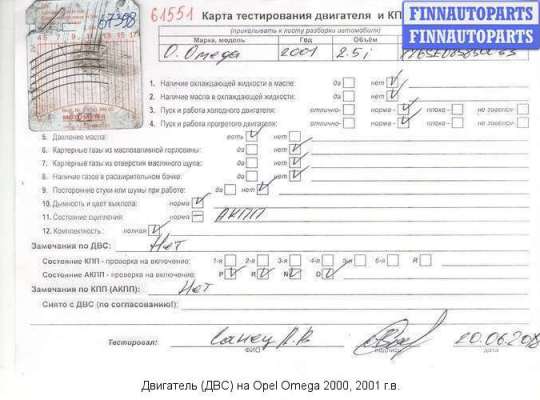 67398
61551 Карта тестирования двигателя и КП
FINNAUTOPARTS
FINNAUTOPARTS
(прикалывать к листу разборки автомобиля)
Марка, модель Год Объём
O. Omega 2001 2.5 i
1. Наличие охлаждающей жидкости в масле: да нет
2. Наличие масла в охлаждающей жидкости: да нет
3. Пуск и работа холодного двигателя: отлично- норма- плохо- не завелся-
4. Пуск и работа прогретого двигателя: отлично- норма- плохо- не завелся-
5. Давление масла: есть нет
6. Картерные газы из маслозаливной горловины: да нет
7. Картерные газы из отверстия масляного щупа: да нет
8. Наличие газов в расширительном бачке: да нет
9. Посторонние стуки или шумы при работе: да нет
10. Дымность и цвет выхлопа: норма
11. Состояние сцепления: норма АКПП
12. Комплектность: полная
Замечания по ДВС: Нет
Состояние КПП - проверка на включение: 1-я 2-я 3-я 4-я 5-я 6-я R
Состояние АКПП - проверка на включение: P R N D
Замечания по КПП (АКПП): Нет
Снято с ДВС (по согласованию!):
Тестировал:
ФИО подпись дата
Двигатель (ДВС) на Opel Omega 2000, 2001 г.в.